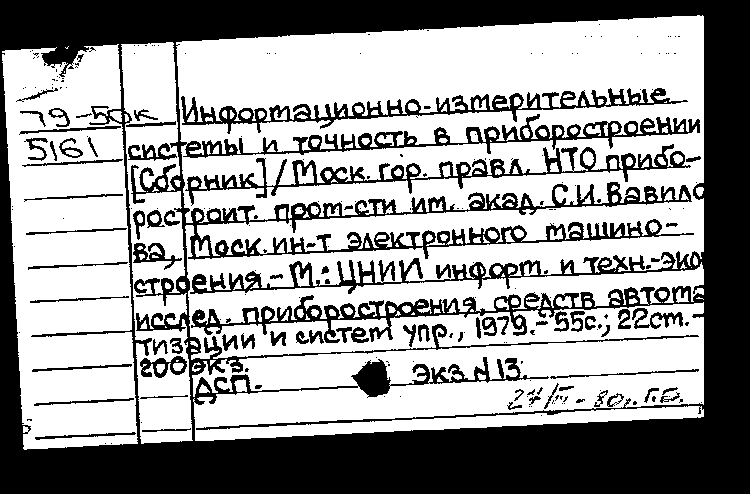 79-50к Информационно-измерительные
5161 системы и точность в приборостроении
[Сборник]/Моск. гор. правл. НТО прибо-
ростроит. пром-сти им. акад. С.И. Вавило
ва, Моск. ин-т электронного машино-
строения.- М.: ЦНИИ информ. и техн.-эко
исслед. приборостроения, средств автома
тизации и систем упр., 1979.- 55с.; 22см.-
200экз.
ДСП. Экз.N13.
27/III-80г. Г.Б.